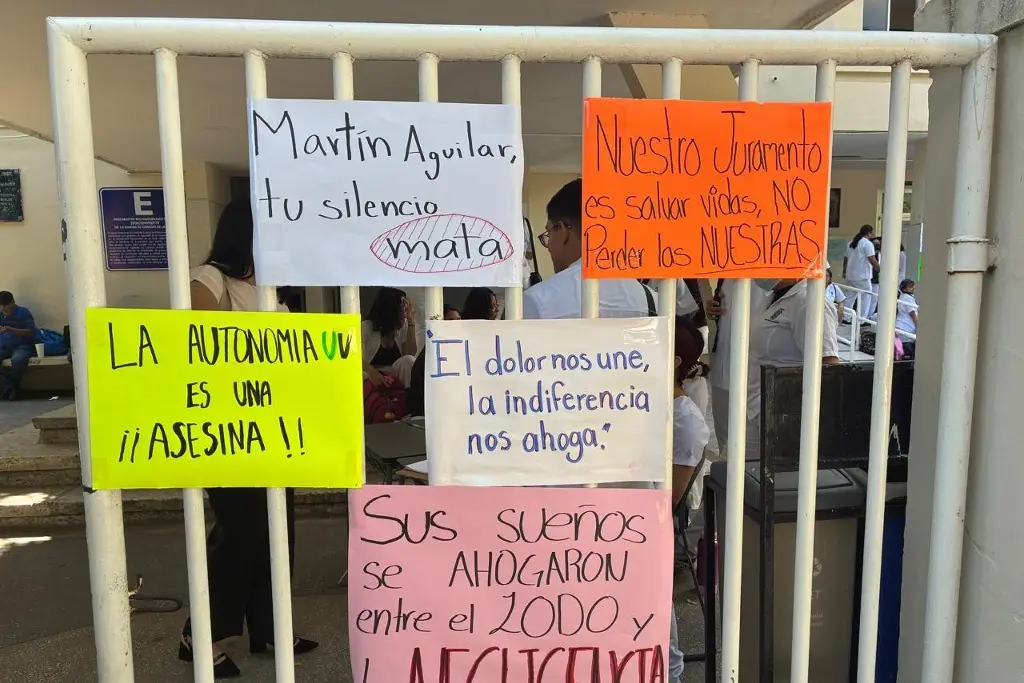 Martín Aguilar,
tu silencio
mata
Nuestro Juramento
es salvar vidas, NO
Perder las NUESTRAS
LA AUTONOMIA UV
ES UNA
¡¡ASESINA!!
"El dolor nos une,
la indiferencia
nos ahoga."
Sus sueños
se AHOGARON
entre el LODO y
la NEGLIGENCIA
E